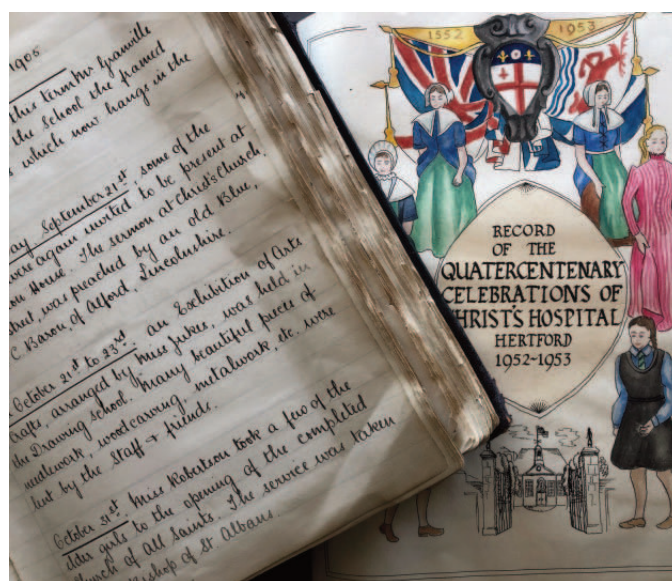 1905
this term Mr Granville
the school the framed
which now hangs in the
September 21st, some of the
were again invited to be present at
House. The sermon at Christ's Church.
was preached by an old Blue,
C. Baron, of Alford, Lincolnshire.
October 21st to 23rd. an Exhibition of Arts
Crafts, arranged by Miss Jukes, was held in
the Drawing School. Many beautiful pieces of
needlework, woodcarving, metalwork, etc. were
lent by the Staff & friends.
October 31st. Miss Robertson took a few of the
elder girls to the opening of the completed
Church of All Saints. The service was taken
Bishop of St Albans.
1552 1953
RECORD
OF THE
QUATERCENTENARY
CELEBRATIONS OF
CHRIST'S HOSPITAL
HERTFORD
1952-1953